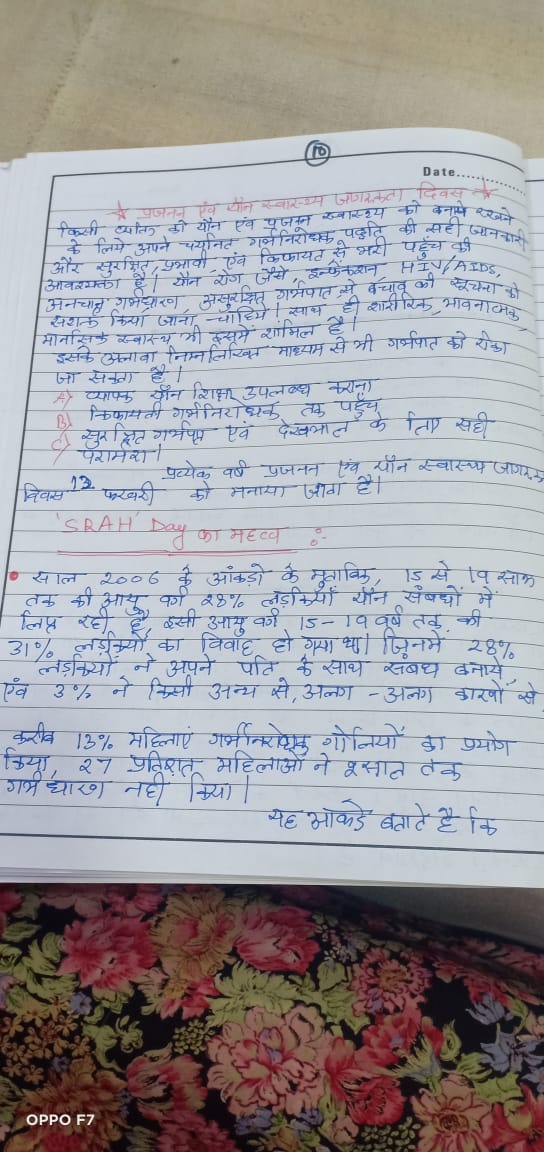 10
Date............
☆ प्रजनन एवं यौन स्वास्थ्य जागरूकता दिवस ☆
किसी व्यक्ति को यौन एवं प्रजनन स्वास्थ्य को बनाये रखने
के लिये अपने चयनित गर्भनिरोधक पद्धति की सही जानकारी
और सुरक्षित, प्रभावी एवं किफायत से भरी पहुँच की
आवश्यकता है। यौन रोग जैसे इन्फेकशन, HIV/AIDS,
अनचाहा गर्भधारण, असुरक्षित गर्भपात से बचाव की को
सशक्त किया जाना चाहिये। साथ ही शारीरिक, भावनात्मक,
मानसिक स्वास्थ्य भी इसमें शामिल है।
इसके अलावा निम्नलिखित माध्यम से भी गर्भपात को रोका
जा सकता है।
A) व्यापक यौन शिक्षा उपलब्ध कराना
B) किफायती गर्भनिरोधक तक पहुँच
C) सुरक्षित गर्भपात एवं देखभाल के लिए सही
परामर्श।
प्रत्येक वर्ष प्रजनन एवं यौन स्वास्थ्य
दिवस 12 फरवरी को मनाया जाता है।
'SRAH' Day का महत्व :-
• साल 2006 के आंकड़ो के मुताबिक, 15 से 19 साल
तक की आयु वर्ग 28% लड़कियाँ यौन संबधों में
लिप्त रही है इसी आयु वर्ग 15-19 वर्ष तक की
31% लड़कियों का विवाह हो गया था। जिनमें 28%
लड़कियों ने अपने पति के साथ संबध बनाये
एवं 3% ने किसी अन्य से, अलग-अलग कारणों से
करीब 13% महिलाएं गर्भनिरोधक गोलियों का प्रयोग
किया, 27 प्रतिशत महिलाओं ने साल तक
गर्भ धारण नही किया।
यह आंकड़े बताते है कि
OPPO F7